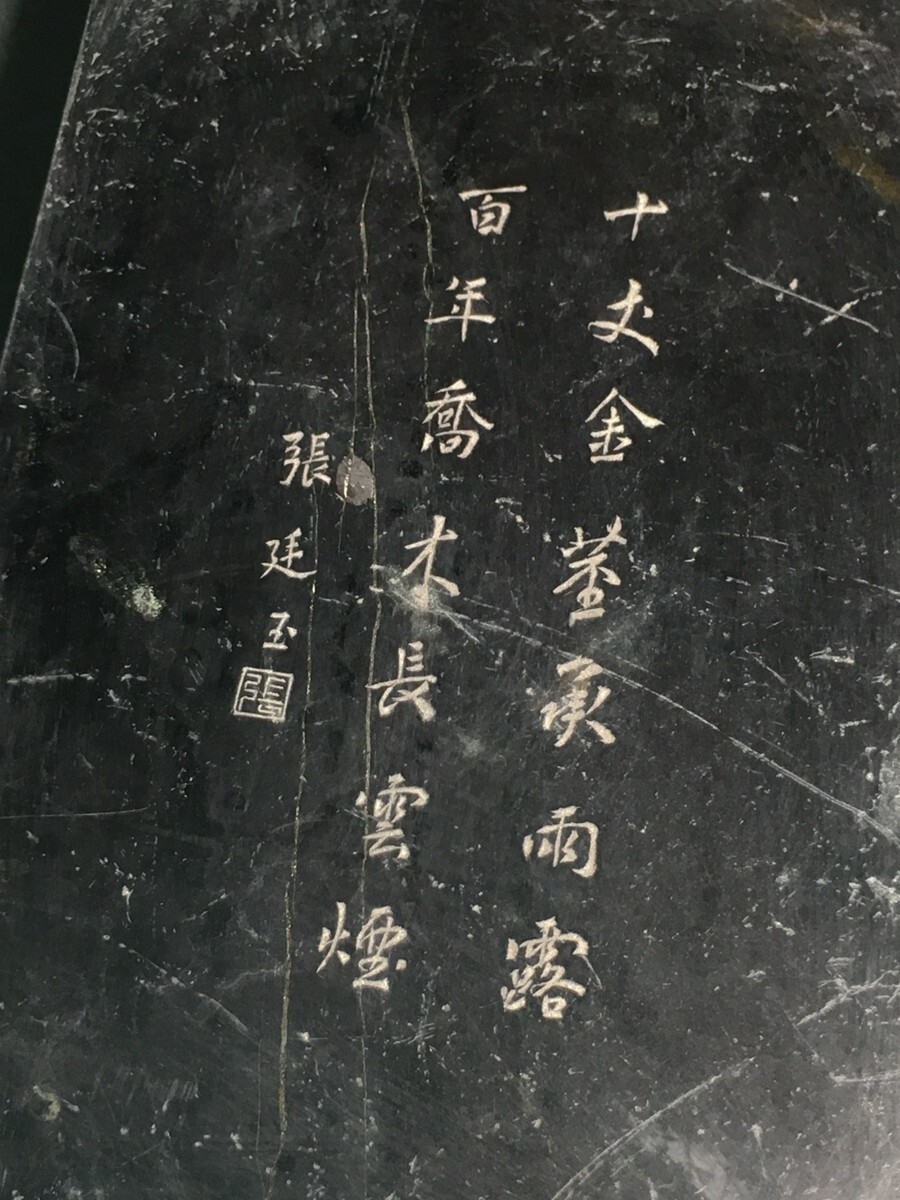 十丈金莖承雨露
百年喬木長雲煙
張廷玉
張